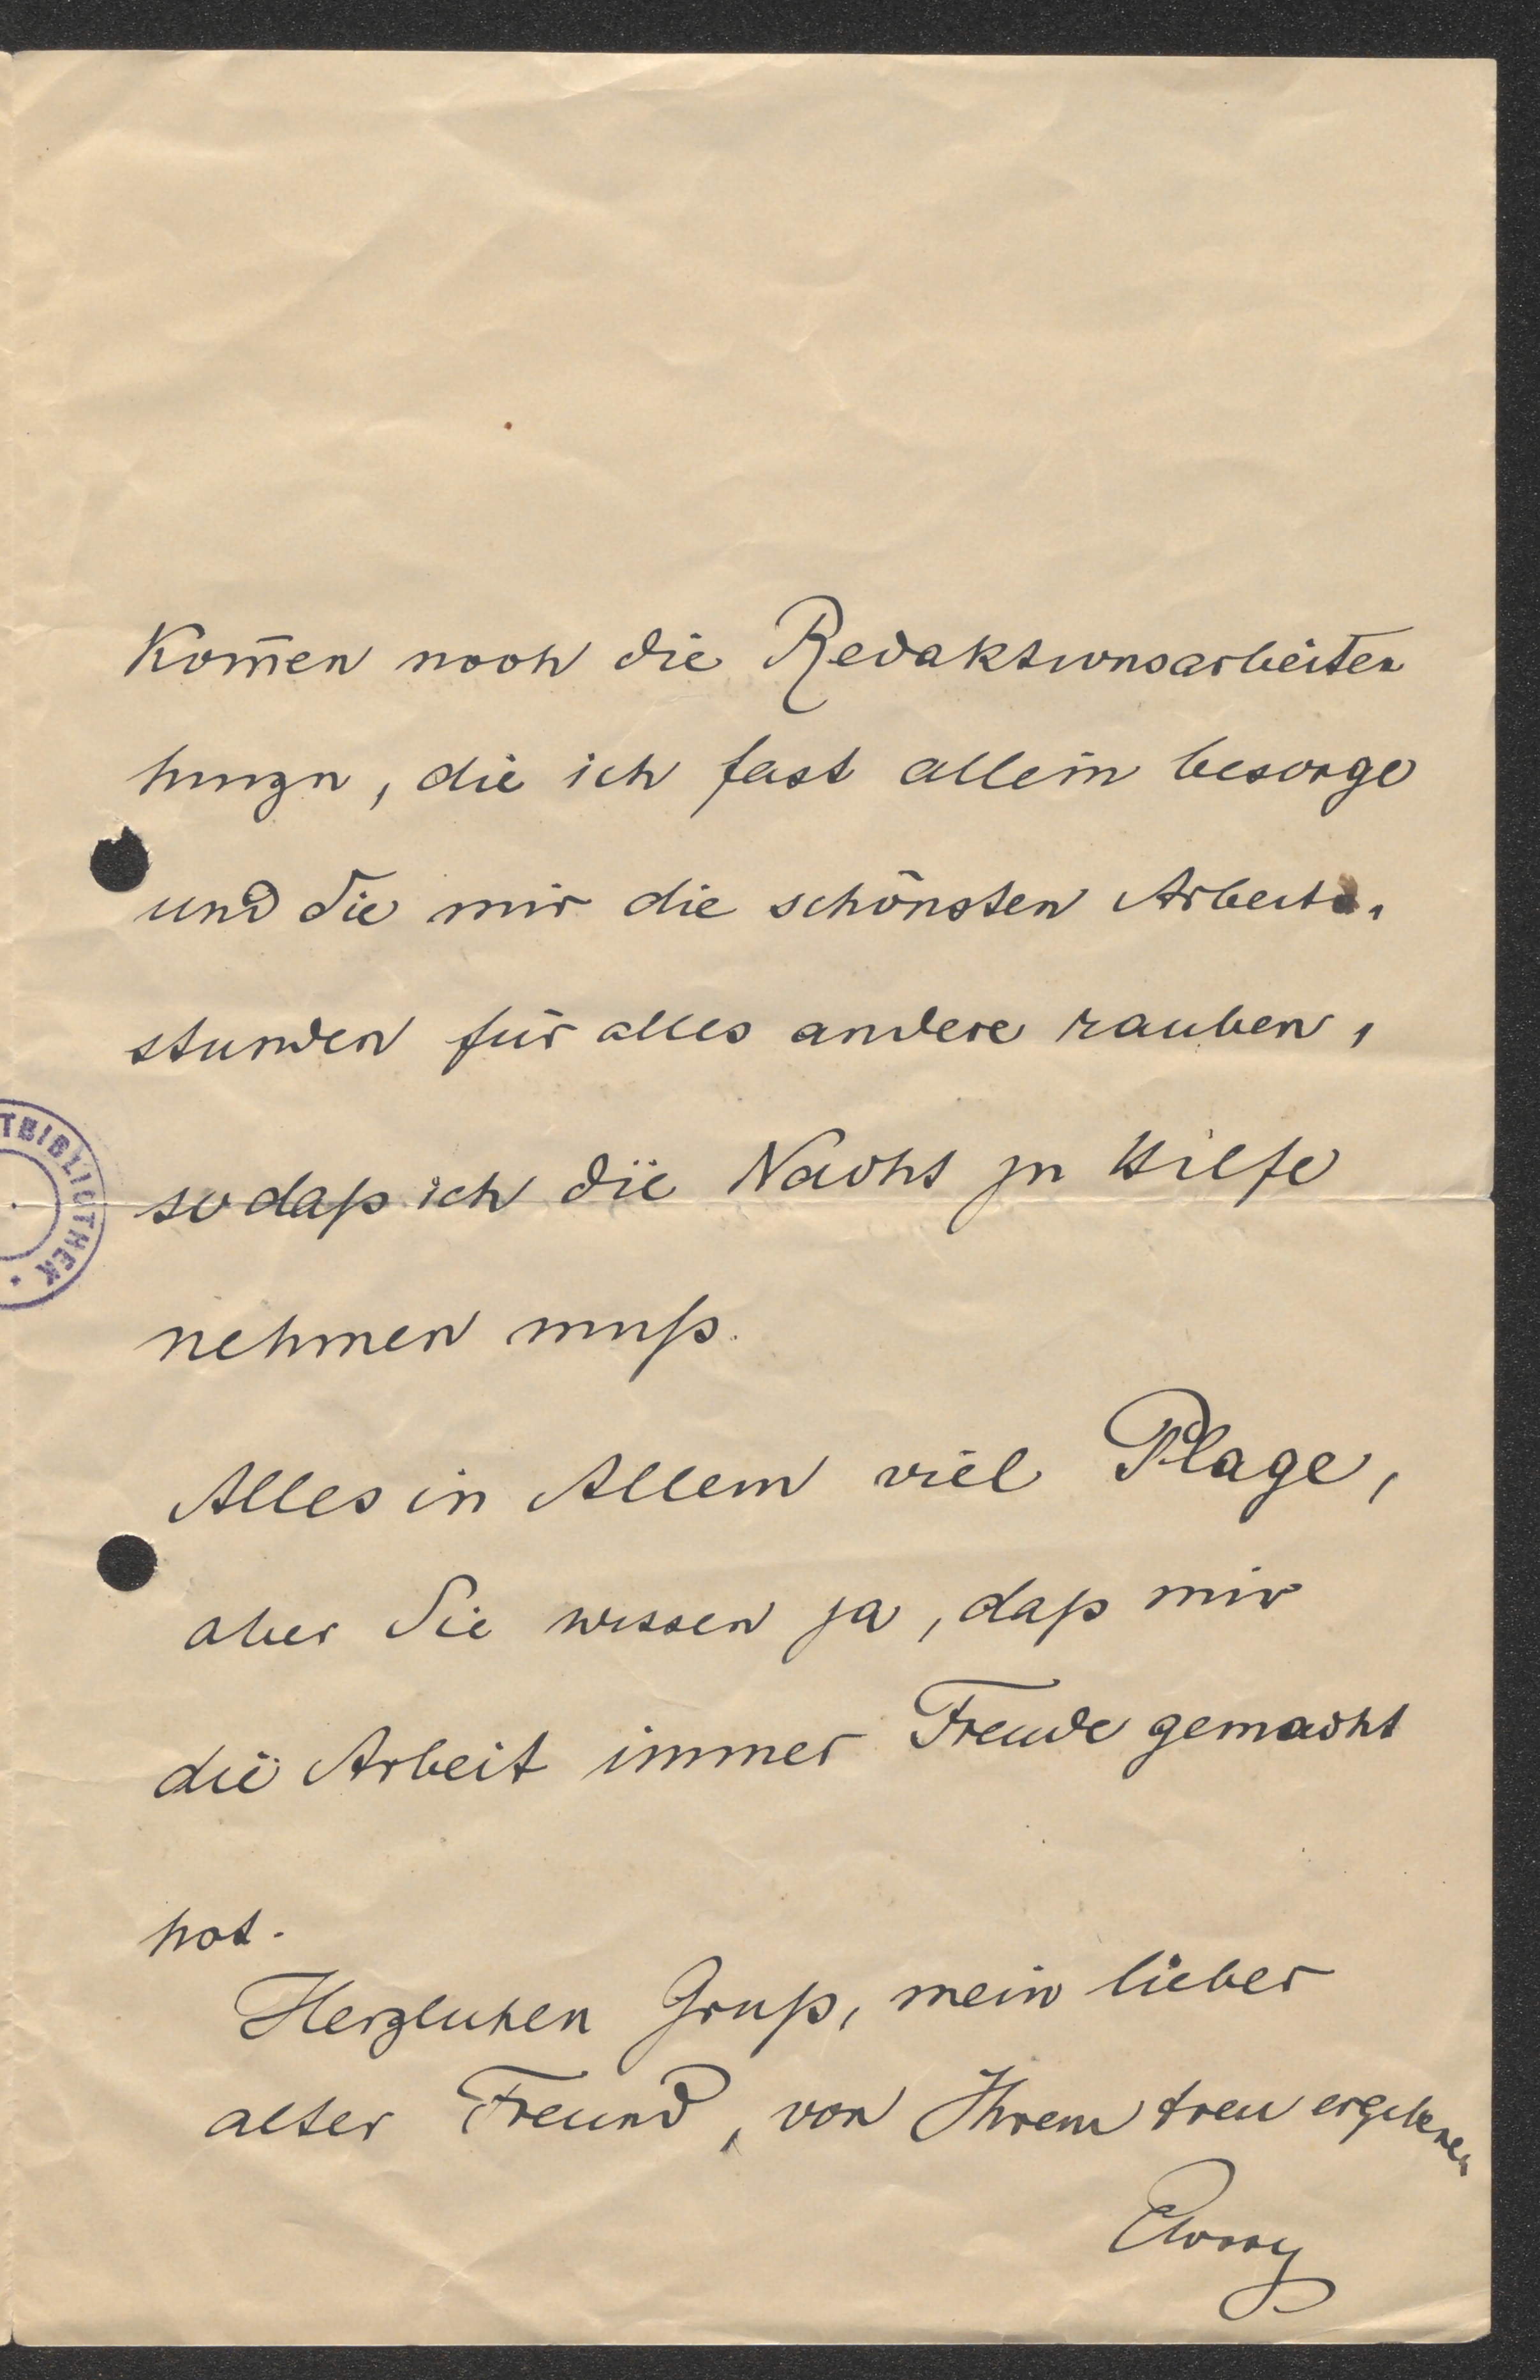 Kom̄en noch die Redaktionsarbeiten
hinzu, die ich fast allein besorge
und die mir die schönsten Arbeits-
stunden für alles andere rauben,
sodaß ich die Nacht zu Hilfe
nehmen muß.
Alles in Allem viel Plage,
aber Sie wissen ja, daß mir
die Arbeit immer Freude gemacht
hat.
Herzlichen Gruß, mein lieber
alter Freund, von Ihrem treu ergebenen
TBIBLIOTHEK